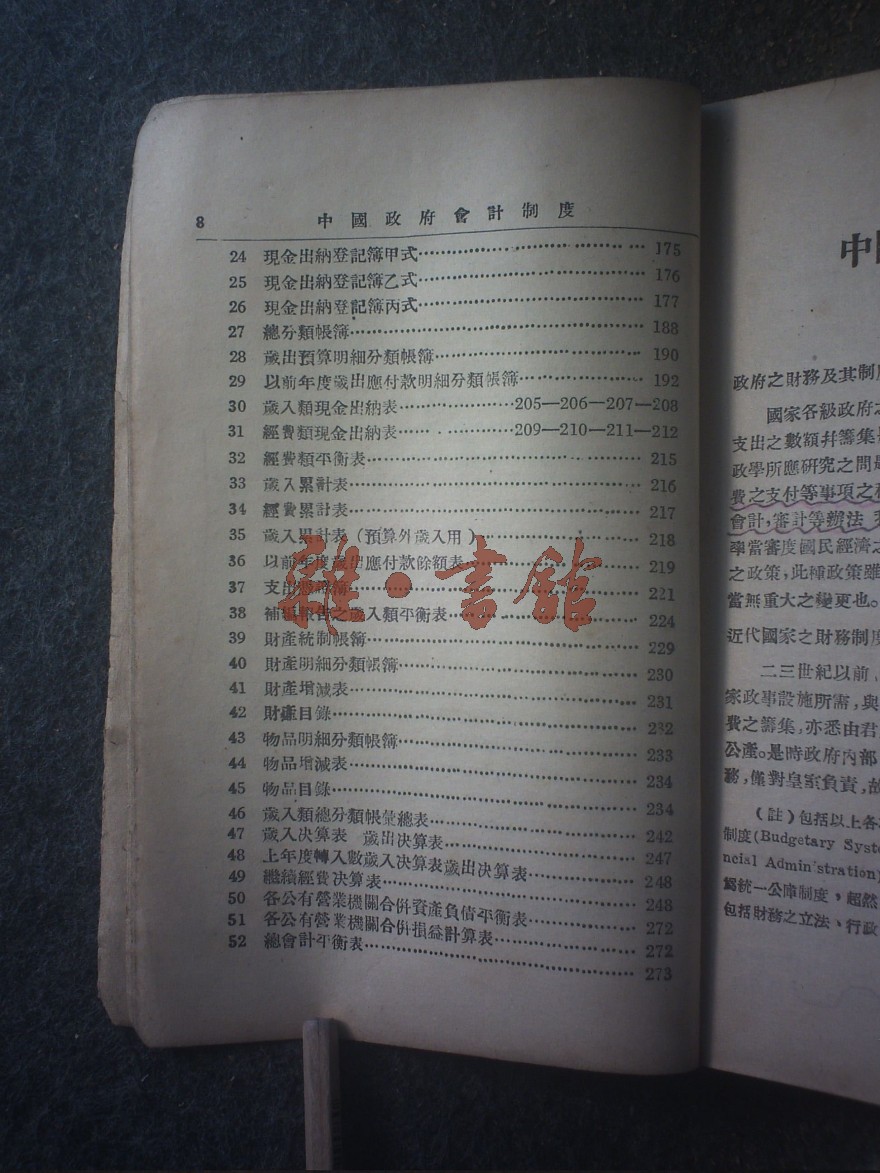 8 中國政府會計制度
24 現金出納登記簿甲式 175
25 現金出納登記簿乙式 176
26 現金出納登記簿丙式 177
27 總分類帳簿 188
28 歲出預算明細分類帳簿 190
29 以前年度歲出應付款明細分類帳簿 192
30 歲入類現金出納表 205—206—207—208
31 經費類現金出納表 209—210—211—212
32 經費類平衡表 215
33 歲入累計表 216
34 經費累計表 217
35 歲入累計表(預算外歲入用) 218
36 以前年度歲出應付款餘額表 219
37 支出 簿 221
38 補編報告之歲入類平衡表 224
39 財產統制帳簿 229
40 財產明細分類帳簿 230
41 財產增減表 231
42 財產目錄 232
43 物品明細分類帳簿 233
44 物品增減表 234
45 物品目錄 234
46 歲入類總分類帳彙總表 242
47 歲入決算表 歲出決算表 247
48 上年度轉入數歲入決算表歲出決算表 248
49 繼續經費決算表 248
50 各公有營業機關合併資產負債平衡表 272
51 各公有營業機關合併損益計算表 272
52 總會計平衡表 273
雜·書館
中
政府之財務及其制
國家各級政府之
支出之數額幷籌集
政學所應研究之問
費之支付等事項之
會計,審計等辦法
率當審度國民經濟之
之政策,此種政策雖
當無重大之變更也。
近代國家之財務制度
二三世紀以前,
家政事設施所需,與
費之籌集,亦悉由君
公產。是時政府內部
務,僅對皇室負責,故
(註)包括以上各
制度(Budgetary Syste
ncial Administration)
寫統一公庫制度,超然
包括財務之立法、行政